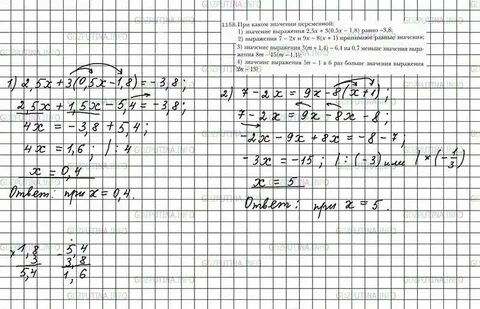 1158. При каком значении переменной:
1) значение выражения 2,5x + 3(0,5x − 1,8) равно −3,8;
2) выражения 7 − 2x и 9x − 8(x + 1) принимают равные значения;
3) значение выражения 3(m + 1,4) − 6,4 на 0,7 меньше значения выра-
жения 8m − 15(m − 1,1);
4) значение выражения 5n − 1 в 6 раз больше значения выражения
1) 2,5x + 3(0,5x − 1,8) = −3,8;
2,5x + 1,5x − 5,4 = −3,8;
4x = −3,8 + 5,4;
4x = 1,6; | : 4
x = 0,4
Ответ: при x = 0,4.
× 1,8
3
5,4
− 5,4
3,8
1,6
2) 7 − 2x = 9x − 8(x + 1);
7 − 2x = 9x − 8x − 8;
−2x − 9x + 8x = −8 − 7;
−3x = −15; | : (−3) или | × (−1/3)
x = 5
Ответ: при x = 5.
GDZPUTINA.INFO